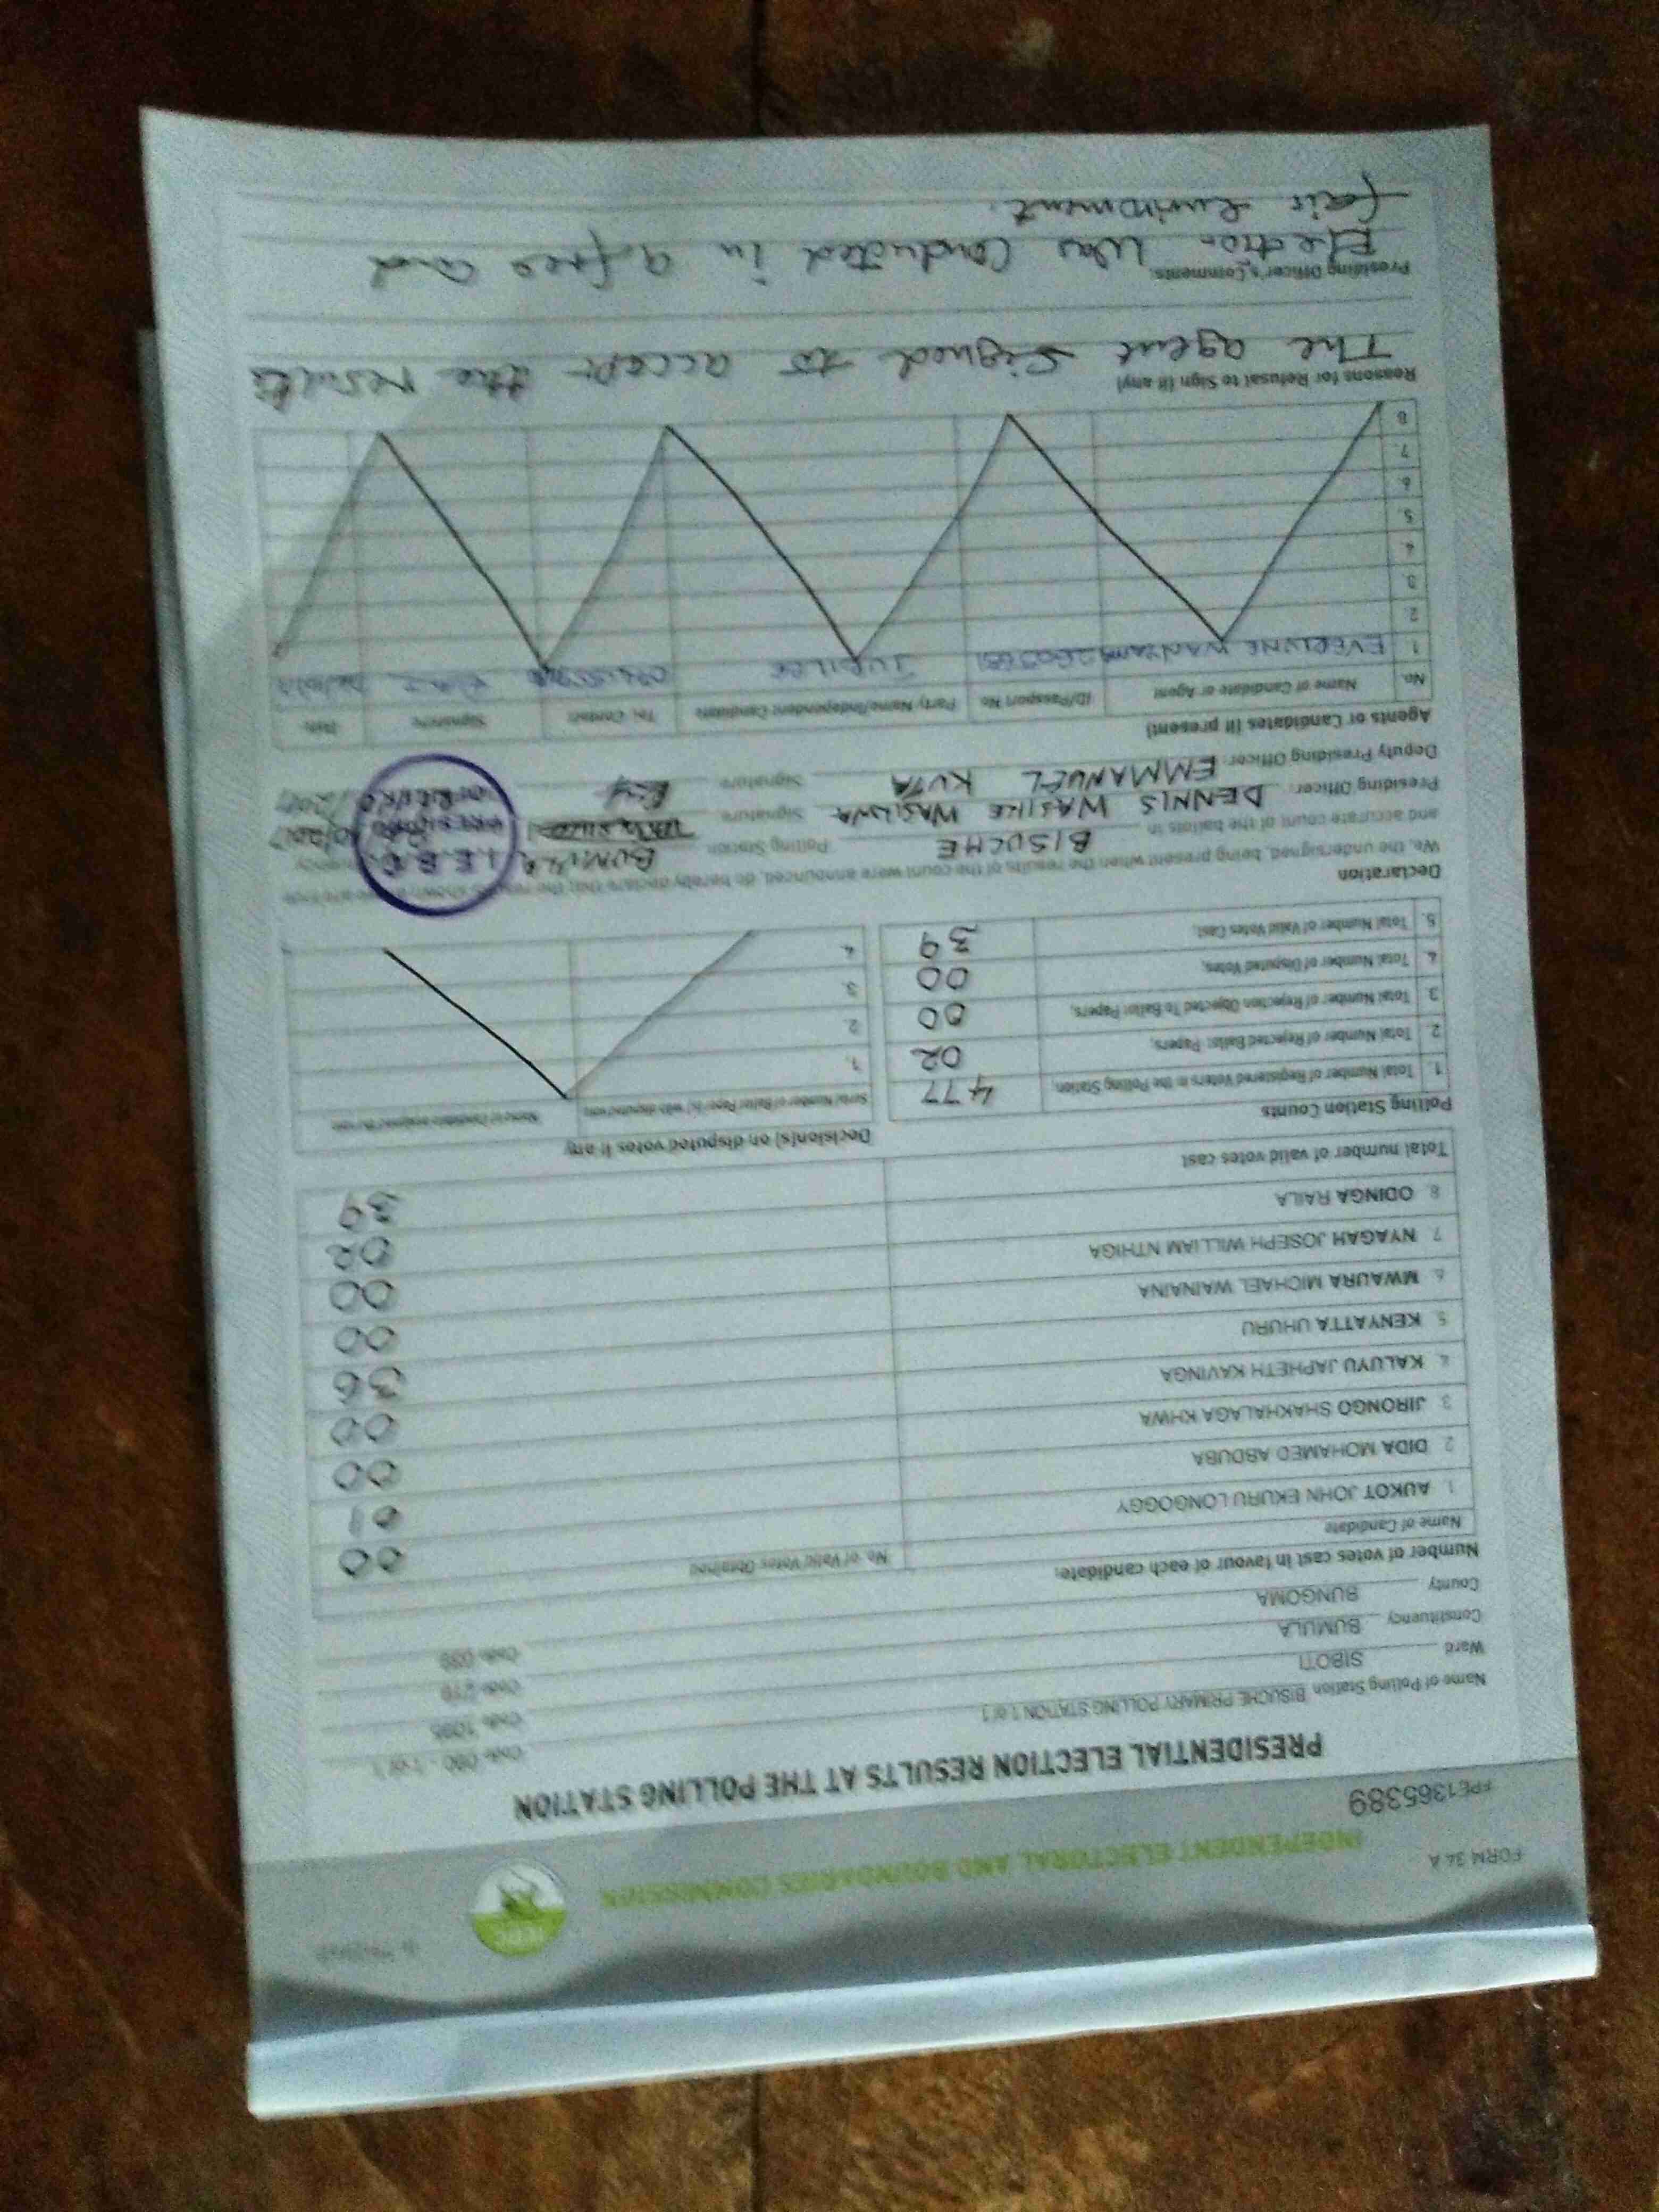 FORM 34 A
INDEPENDENT ELECTORAL AND BOUNDARIES COMMISSION
IEBC
FPE1365389
PRESIDENTIAL ELECTION RESULTS AT THE POLLING STATION
Name of Polling Station BISUCHE PRIMARY POLLING STATION 1 of 1 Code 090 - 1 of 1
Ward SIBOTI Code 1095
Constituency BUMULA Code 219
County BUNGOMA Code 039
Number of votes cast in favour of each candidate:
Name of Candidate No. of Valid Votes Obtained
1. AUKOT JOHN EKURU LONGOGGY 00
2. DIDA MOHAMED ABDUBA 01
3. JIRONGO SHAKHALAGA KHWA 00
4. KALUYU JAPHETH KAVINGA 00
5. KENYATTA UHURU 36
6. MWAURA MICHAEL WAINAINA 00
7. NYAGAH JOSEPH WILLIAM NTHIGA 00
8. ODINGA RAILA 02
Total number of valid votes cast 39
Polling Station Counts
1. Total Number of Registered Voters in the Polling Station 477
2. Total Number of Rejected Ballot Papers, 02
3. Total Number of Rejection Objected To Ballot Papers, 00
4. Total Number of Disputed Votes, 00
5. Total Number of Valid Votes Cast, 39
Decision(s) on disputed votes if any
Serial Number of Ballot Paper (s) with disputed vote Name of Candidate assigned the vote
1.
2.
3.
4.
Declaration
We, the undersigned, being present when the results of the count were announced, do hereby declare that the results shown above are true
and accurate count of the ballots in BISUCHE Polling Station BUMULA
Presiding Officer: DENNIS WASIKE WASILWA Signature
Deputy Presiding Officer: EMMANUEL KUTA Signature
I.E.B.C.
PRESIDING
OFFICER
Agents or Candidates (if present)
No. Name of Candidate or Agent ID/Passport No. Party Name/Independent Candidate Tel. Contact Signature Date
1. EVERLYNE JUBILEE
2.
3.
4.
5.
6.
7.
8.
Reasons for Refusal to Sign (if any)
The agent signed to accept the results
Presiding Officer's Comments:
Election was conducted in a free and
fair environment.